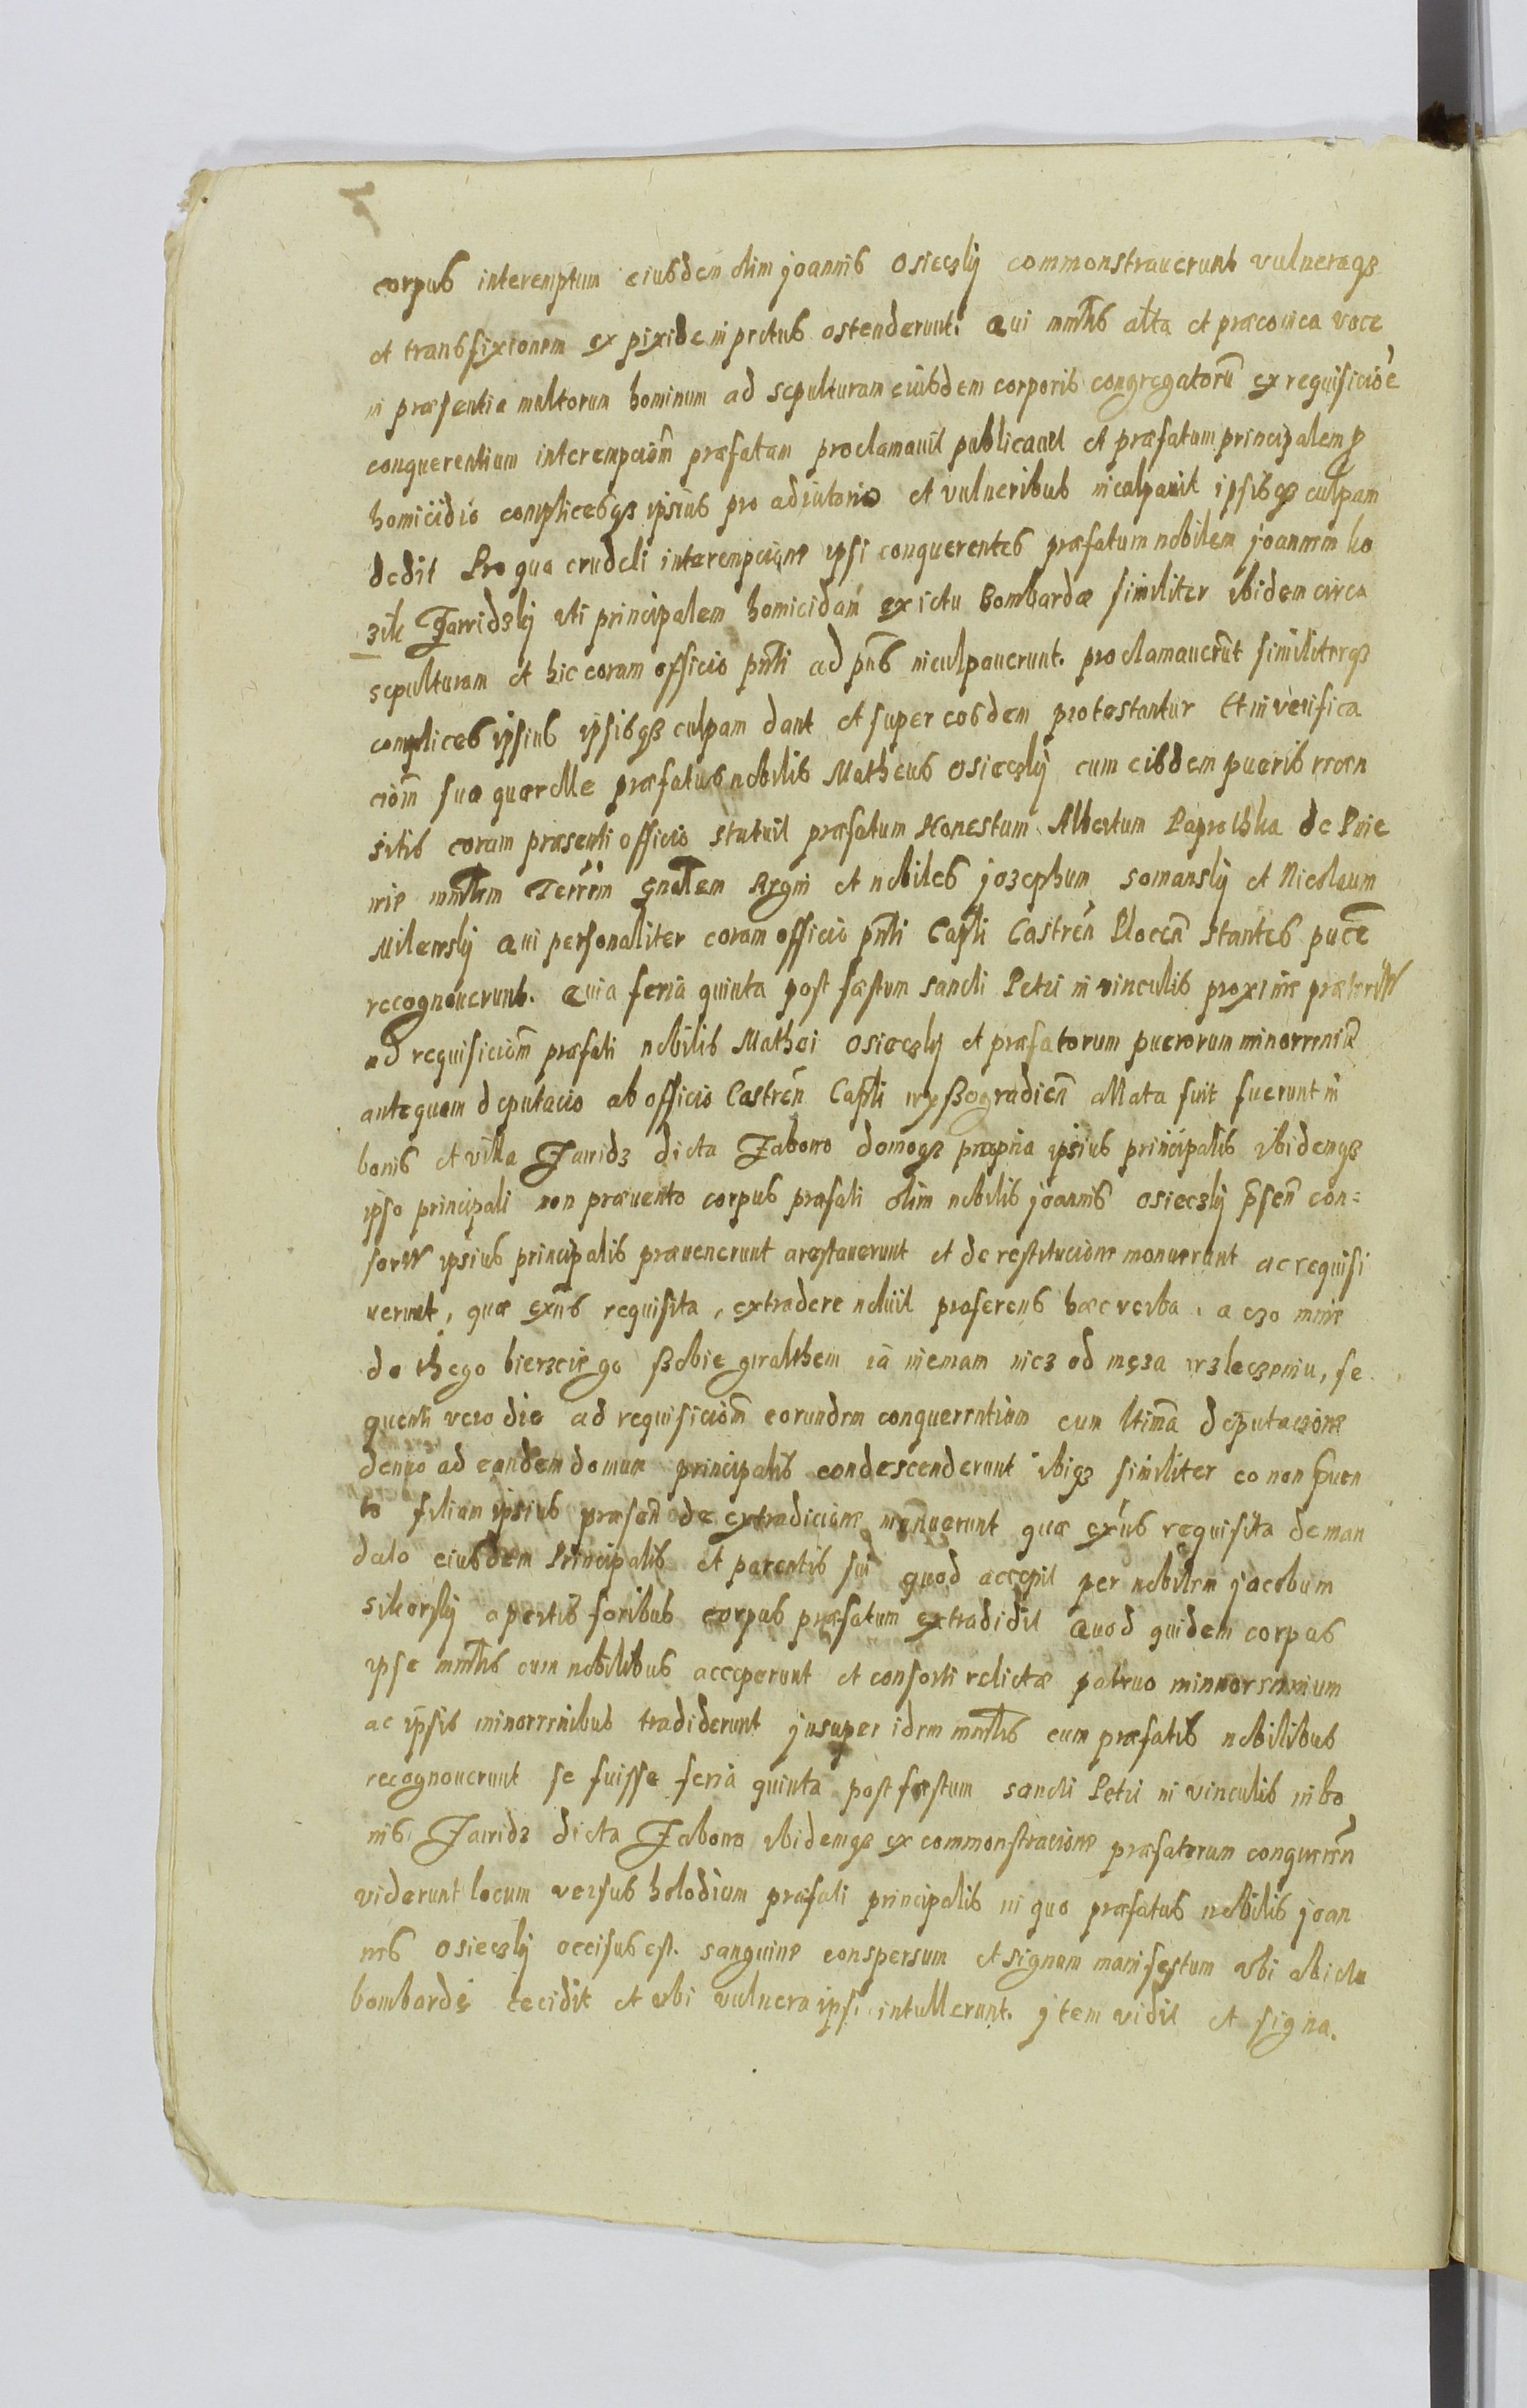 corpus interemptum eiusdem olim joannis Osieczkÿ commonstrauerunt vulneraqз
et transfixionem ex pixide in pectus ostenderunt. Qui mnrlis alta et præconica voce
in præsentia multorum hominum ad sepulturam eiusdem corporis congregatorũ ex requisicioe
conquerentium interempciom̃ præfatam proclamauit publicauit et præfatum principalem ꝓ
homicidio complicesqз ipsius pro adiutorio et vulneribus inculpauit ipsisqз culpam
dedit Pro qua crudeli interempcione ipsi conquerentes præfatum nobilem joannem ko
zik Zawidzkÿ uti principalem homicidam ex ictu Bombardæ similiter ibidem circa
sepulturam et hic coram officio pnti ad pñs inculpauerunt. proclamauerũt similiterqз
complices ipsius ipsisqз culpam dant et super eosdem protestantur Et in verifica
ciom̃ suæ quærelle præfatus nobilis Matheus Osieczkÿ cum eisdem pueris
sitis coram præsenti officio statuit præfatum Honestum Albertum
mnrlem Terrm̃ gnalem Regni et nobiles jozephum somanskÿ et Nicolaum
Milewskÿ Qui personaliter coram officio pnti Capli Castreñ Plocen̄ stantes
recognouerunt. Quia feria quinta post fæstum sancti Petri in vinculis proxime
ad requisiciom̃ præfati nobilis Mathei Osieczkÿ et præfatorum puerorum minorenniũ
antequam deputacio ab officio Castreñ Capli wÿßogradien̄ allata fuit fuerunt in
bonis et villa Zawidz dicta Zaborowo domoqз propria ipsius principalis ibidemqз
ipso principali non præuento corpus præfati olim nobilis joannis Osieczkÿ p̃sen̄ con=
sorte ipsius principalis præuenerunt arestauerunt et de restitucione monuerunt ac requisi
uerunt, quæ ex iis requisita, extradere noluit proferens hæc verba. a czo mnie
do thego bierzcie go ßobie gwalthem ia niemam nicz od męza wzleczeniu, se
quenti vero die ad requisiciom̃ eorundem conquerentium cum ltima deputacione
denuo ad eandem domum principalis condescenderunt ibiqз similiter eo non p̃uen
to filiam ipsius præsen̄ de extradicione monuerunt quæ ex iis requisita de man
dato eiusdem Principalis et parentis sui quod accepit per nobilem jacobum
sikorskÿ apertis foribus corpus præfatum extradidit Quod quidem corpus
ipse mnrlis cum nobilibus acceperunt et consorti relictæ patruo minnorennium
ac ipsis minorennibus tradiderunt jnsuper idem mnrlis cum præfatis nobilibus
recognouerunt se fuisse feria quinta post fæstum sancti Petri in vinculis in bo
nis Zawidz dicta Zaborowo ibidemqз ex commonstracione præfatorum conqueren̄
viderunt locum versus holodium præfati principalis in quo præfatus nobilis joan
nes Osieczkÿ occisus est. sanguine conspersum et signum manifestum ubi ab ictu
bombardę cecidit et ubi vulnera ipsi intullerunt. jtem vidit et signa.